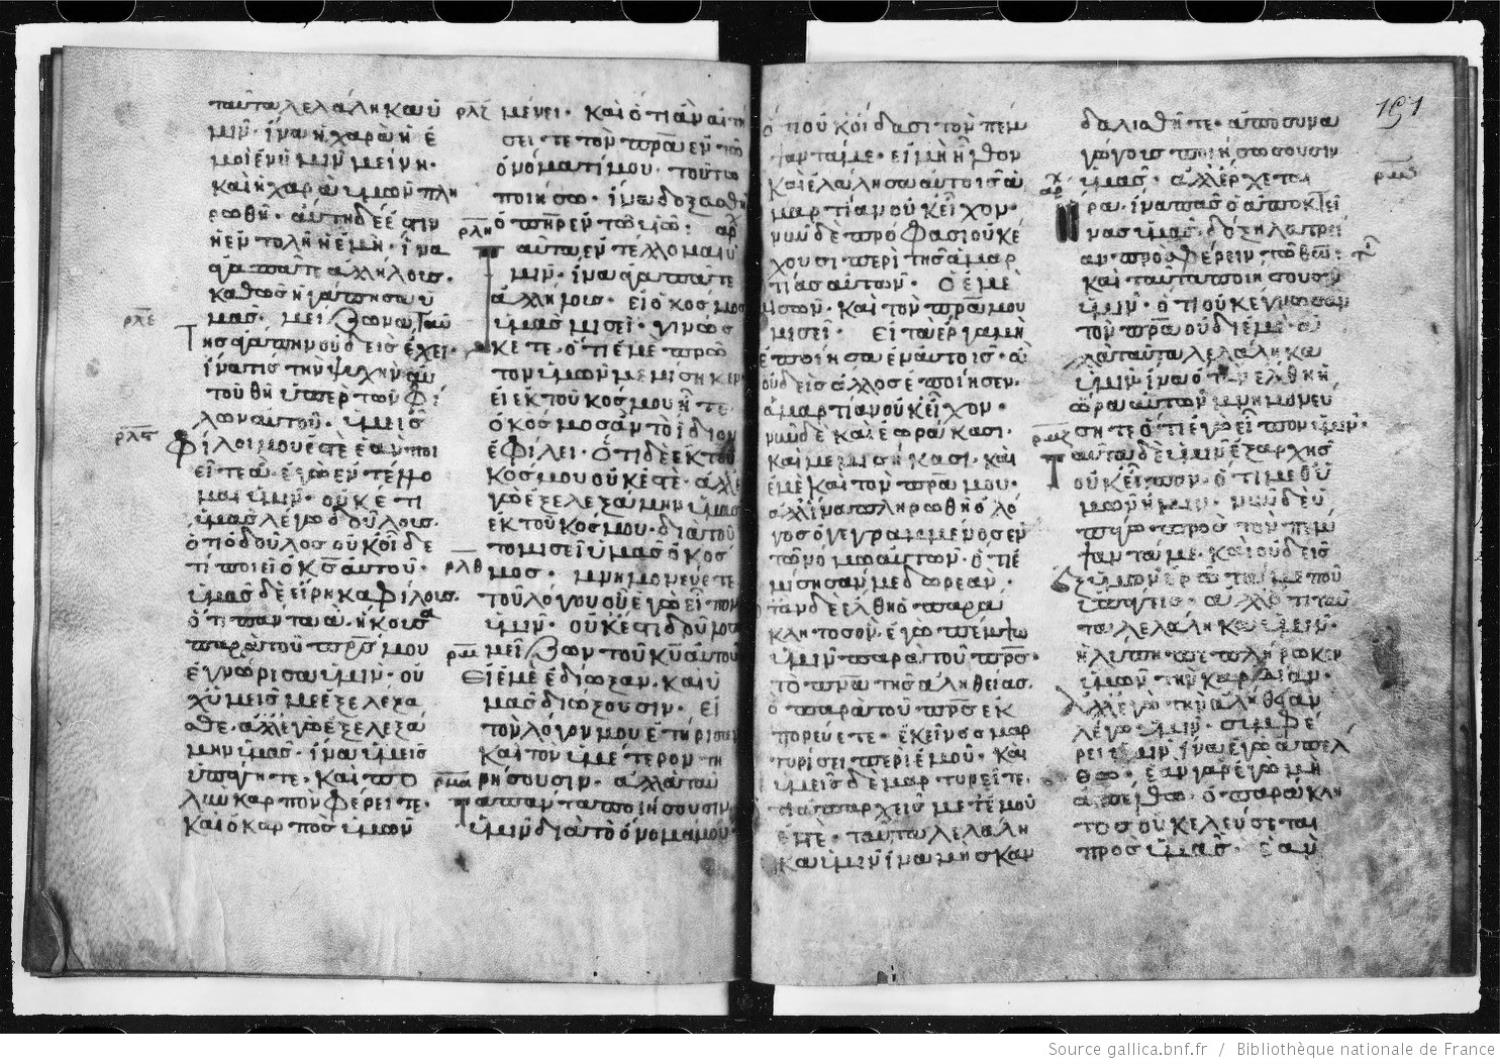 ταῦτα λελάληκα ὑ
μῖν· ἵνα ἡ χαρὰ ἡ ἐ
μὴ ἐν ὑμῖν μείνη·
καὶ ἡ χαρὰ ὑμῶν πλη
ρωθῆ· αὕτη δέ ἐστιν
ἡ ἐντολὴ ἡ ἐμὴ· ἵνα
ἀγαπᾶτε ἀλλήλους·
καθὼς ἠγάπησα ὑ
ρλε
μᾶς· μείζονα ταύ
της ἀγάπην οὐδεὶς ἔχει·
ἵνα τὶς τὴν ψυχὴν αὐ
τοῦ θῆ ὑπὲρ τῶν φί
λων αὐτοῦ· ὑμεῖς
ρλς
φίλοι μου ἐστὲ ἐὰν ποι
εῖτε ὰ ἐγὼ ἐντέλλο
μαι ὑμῖν· οὐκέτι
ὑμᾶς λέγω δούλους·
ὅτι ὁ δοῦλος οὐκ οἶδε
τί ποιεῖ ὁ κς αὐτοῦ·
ὑμᾶς δὲ εἴρηκα φίλους·
ὅτι πάντα ἃ ἤκουσα
παρὰ τοῦ πρς μου
ἐγνώρισα ὑμῖν· οὐ
χ ὑμεῖς με ἐξελέξα
σθε· ἀλλ' ἐγὼ ἐξελεξά
μην ὑμᾶς· ἵνα ὑμεῖς
ὑπάγητε· καὶ πο
λὺν καρπὸν φέρειτε·
καὶ ὁ καρπὸς ὑμῶν
ρλζ
μένει· καὶ ὅτι ἂν αἰτή
σειτε τὸν πρα ἐν τῶ
ὀνόματί μου· τοῦτο
ποιήσω· ἵνα δοξασθῆ
ρλη
ὁ πηρ ἐν τῶ υἱῶ:
ταῦτα ἐντέλλομαι ὑ
μῖν· ἵνα ἀγαπᾶτε
ἀλλήλους· εἰ ὁ κόσμος
ὑμᾶς μισεῖ· γινώσ
κετε· ὅτι ἐμὲ πρῶ
τον ὑμῶν μεμίσηκεν
εἰ ἐκ τοῦ κόσμου ἦτε
ὁ κόσμος ἂν τὸ ἴδιον
ἐφίλει· ὅτι δὲ ἐκ τοῦ
κόσμου οὐκ ἐστὲ· ἀλλ'
ἐγὼ ἐξελεξάμην ὑμᾶς
ἐκ τοῦ κόσμου· διατοῦ
το μισεῖ ὑμᾶς ὁ κόσ
ρλθ
μος· μνημονεύετε
τοῦ λόγου οὗ ἐγὼ εἶπον
ὑμῖν· οὐκ ἔστι δοῦλος
ρμ
μείζων τοῦ κυ αὐτοῦ
εἰ ἐμὲ ἐδίωξαν· καὶ ὑ
μᾶς διώξουσιν· εἰ
τὸν λόγον μου ἐτήρισαν
καὶ τὸν ὑμέτερον τη
ρμα
ρήσουσιν· ἀλλὰ ταῦ
τα πάντα ποιήσουσιν
ὑμῖν διὰ τὸ ὄνομά μου
ὅτι οὐκ οἴδασι τὸν πέμ
ψαντά με· εἰ μὴ ἦλθον
καὶ ἐλάλησα αὐτοῖς ἁ
μαρτίαν οὐκ εἶχον·
νῦν δὲ πρόφασι οὐκ ἔ
χουσι περὶ τῆς ἁμαρ
τίας αὐτῶν· ὁ ἐμὲ
μισῶν· καὶ τὸν πρα μου
μισεῖ· εἰ τὰ ἔργα μὴ
ἐποίησα ἐν αὐτοῖς· ἃ
οὐδεὶς ἄλλος ἐποίησεν·
ἁμαρτίαν οὐκ εἶχον·
νῦν δὲ καὶ ἑωράκασι·
καὶ μεμισήκασι· καὶ
ἐμὲ καὶ τὸν πρα μου·
ἀλλ' ἵνα πληρωθῆ ὁ λό
γος ὁ γεγραμμένος ἐν
τῶ νόμω αὐτῶν· ὅτι ἐ
μίσησάν με δωρεάν·
ὅταν δὲ ἔλθη ὁ παρά
κλητος ὃν· ἐγὼ πέμψω
ὑμῖν παρὰ τοῦ πρς·
τὸ πνα τῆς ἀληθείας·
ὃ παρὰ τοῦ πρς ἐκ
πορεύετε· ἐκεῖνος μαρ
τυρίσει περὶ ἐμοῦ· καὶ
ὑμεῖς δὲ μαρτυρεῖτε·
ὅτι ἀπαρχεῖς μετ' ἐμοῦ
ἐστὲ· ταῦτα λελάλη
κα ὑμῖν ἵνα μὴ σκαν
151
δαλισθῆτε· ἀποσυνα
γώγους ποιήσωσουσιν
ὑμᾶς· ἀλλ' ἔρχετε
ρα ἵνα πᾶς ὁ ἀποκτεί
νας ὑμᾶς· δόξη λατρεί
αν προσφέρειν τῶ θω·
καὶ ταῦτα ποιήσουσιν
ὑμῖν· ὅτι οὐκ ἔγνωσαν
τὸν πρα οὐδὲ ἐμὲ· ἀλ
λὰ ταῦτα λελάληκα
ὑμῖν ἵνα ὅταν ἔλθη ἡ
ὥρα αὐτῶν μνημονεύ
σητε ὅτι ἐγὼ εἶπον ὑμῖν·
ταῦτα δὲ ὑμῖν ἐξαρχῆς
οὐκ εἶπον· ὅτι μεθ' ὑ
μῶν ἤμην· νῦν δὲ ὑ
πάγω πρὸς τὸν πέμ
ψαντά με· καὶ οὐδεὶς
ἐξ ὑμῶν ἐρωτᾶ με ποῦ
ὑπάγεις· ἀλλ' ὅτι ταῦ
τα λελάληκα ὑμῖν·
ἡ λύπη πεπλήρωκεν
ὑμῶν τὴν καρδίαν·
ἀλλ' ἐγὼ τὴν ἀλήθειαν
λέγω ὑμῖν· συμφέ
ρει ὑμῖν ἵνα ἐγὼ ἀπέλ
θω· ἐὰν γὰρ ἐγὼ μὴ
ἀπέλθω· ὁ παράκλη
τος οὐκ ἐλεύσεται
πρὸς ὑμᾶς· ἐὰν
Source gallica.bnf.fr / Bibliothèque nationale de France